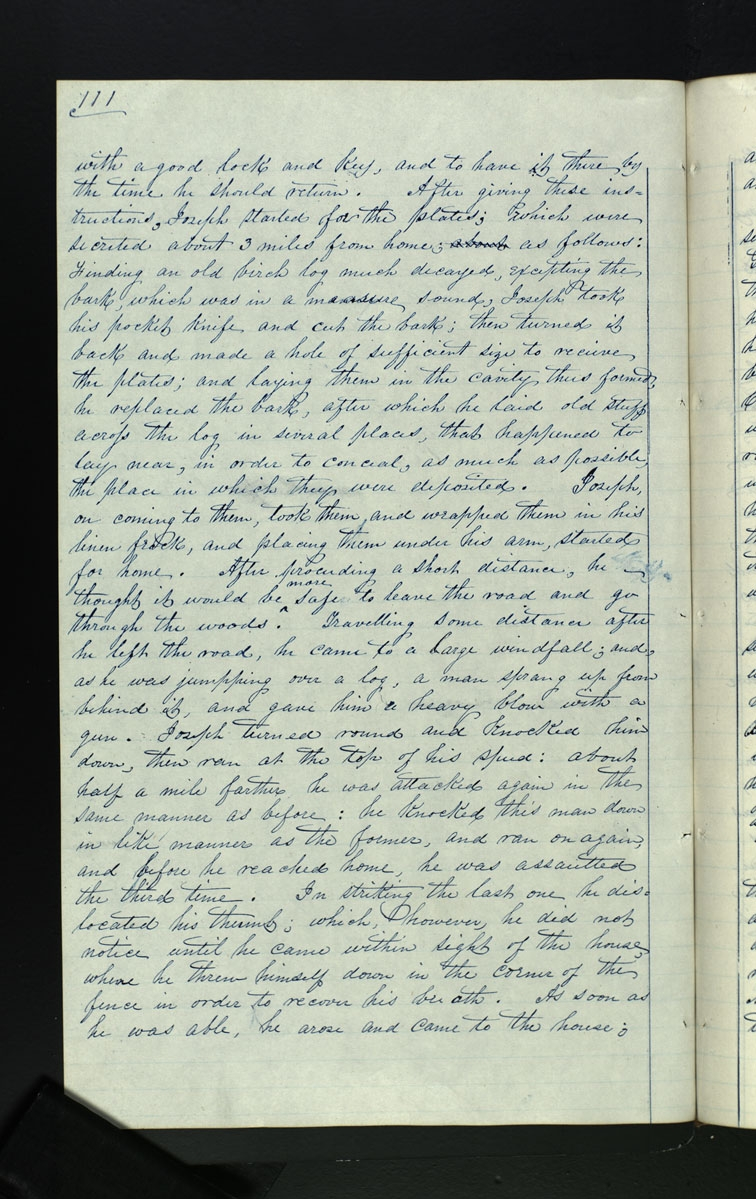 111
with a good lock and key, and to have it there by
the time he should return. After giving these ins=
tructions, Joseph started for the plates; which were
secreted about 3 miles from home; about as follows:
Finding an old birch log much decayed, excepting the
bark, which was in a measure sound, Joseph took
his pocket knife and cut the bark; then turned it
back and made a hole of sufficient size to recieve
the plates; and laying them in the cavity thus formed,
he replaced the bark, after which he laid old stuff
across the log in several places, that happened to
lay near, in order to conceal, as much as possible,
the place in which they were deposited. Joseph,
on coming to them, took them, and wrapped them in his
linen frock, and placing them under his arm, started
for home. After proceeding a short distance, he
thought it would be more safe to leave the road and go
through the woods. Travelling some distance after
he left the road, he came to a large windfall; and,
as he was jumpping over a log, a man sprang up from
behind it, and gave him a heavy blow with a
gun. Joseph turned round and knocked him
down, then ran at the top of his speed: about
half a mile farther he was attacked again in the
same manner as before: he knocked this man down
in like manner as the former, and ran on again,
and before he reached home, he was assaulted
the third time. In striking the last one he dis=
located his thumb; which, however, he did not
notice until he came within sight of the house,
where he threw himself down in the corner of the
fence in order to recover his breath. As soon as
he was able, he arose and came to the house;